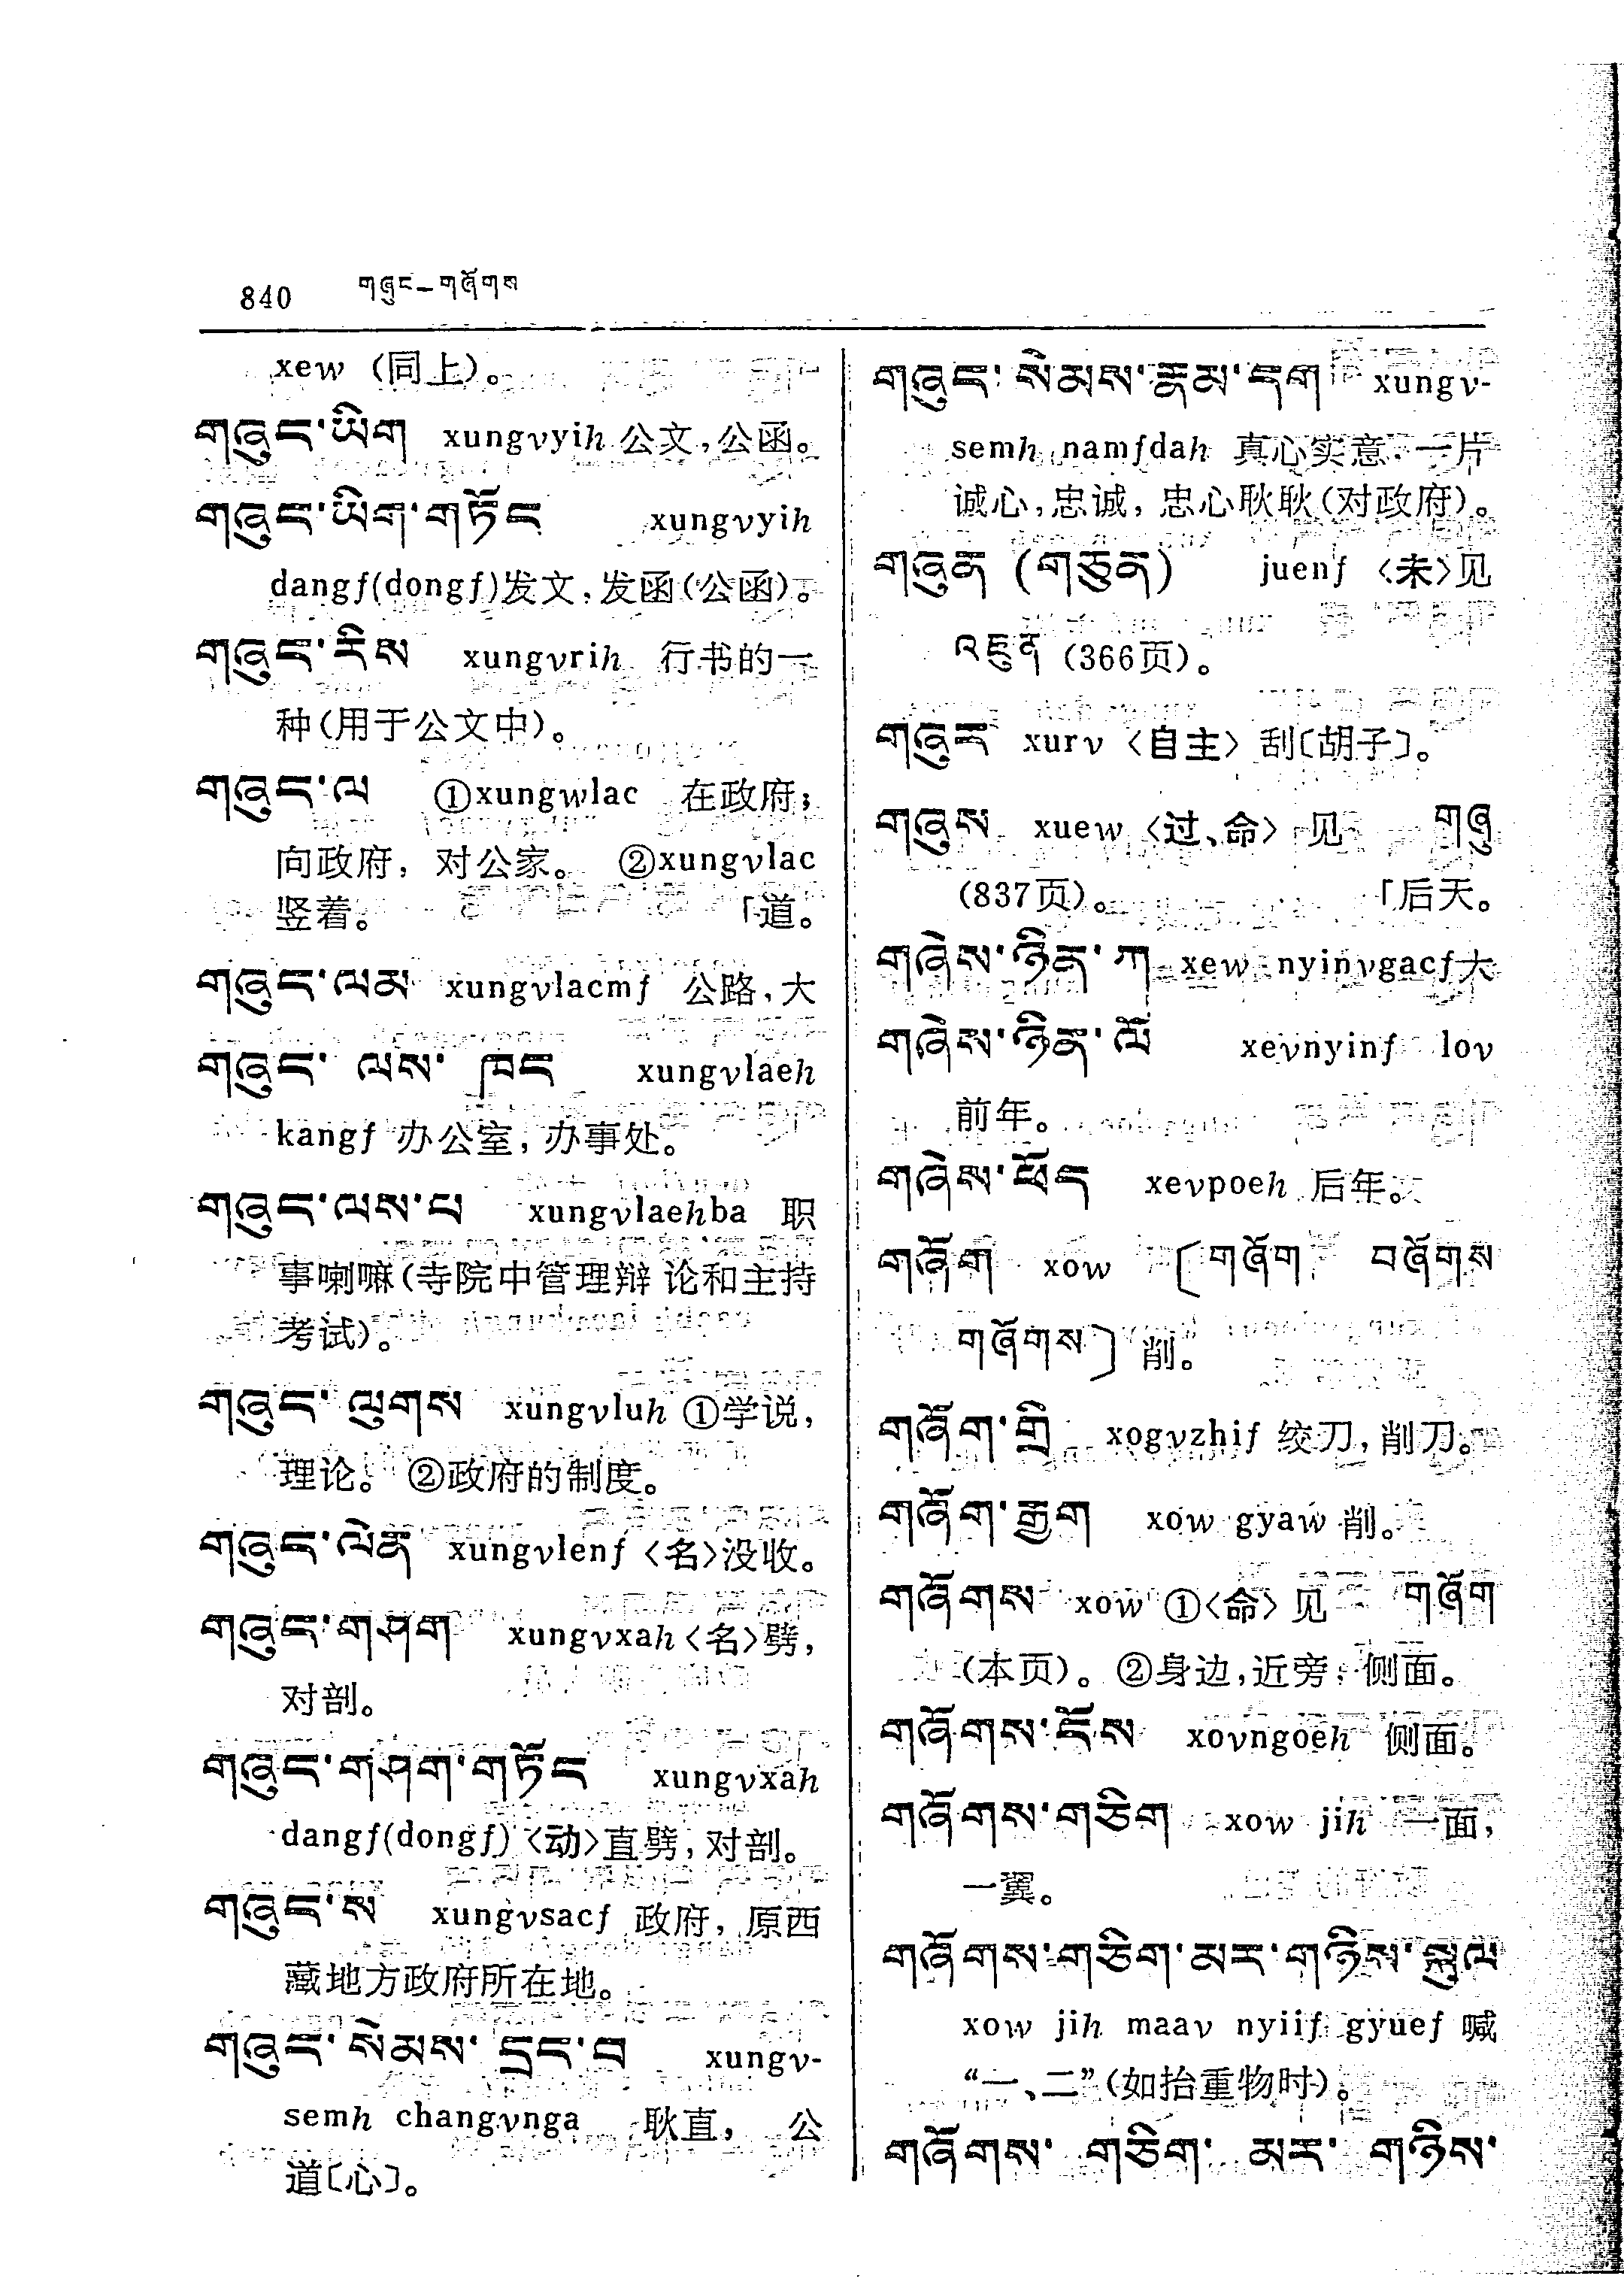 840 གཞུང–གཞོགས
xew (同上)。
གཞུང་ཡིག xungvyih 公文,公函。
གཞུང་ཡིག་གཏོང xungvyih
dangf(dongf)发文,发函(公函)。
གཞུང་རིས xungvrih 行书的一
种(用于公文中)。
གཞུང་ལ ①xungwlac 在政府;
向政府, 对公家。 ②xungvlac
竖着。 「道。
གཞུང་ལམ xungvlacmf 公路,大
གཞུང་ ལས་ ཁང xungvlaeh
kangf 办公室, 办事处。
གཞུང་ལས་པ xungvlaehba 职
事喇嘛(寺院中管理辩论和主持
考试)。
གཞུང་ ལུགས xungvluh ①学说,
理论。 ②政府的制度。
གཞུང་ལེན xungvlenf〈名〉没收。
གཞུང་གཤག xungvxah〈名〉劈,
对剖。
གཞུང་གཤག་གཏོང xungvxah
dangf(dongf)〈动〉直劈, 对剖。
གཞུང་ས xungvsacf 政府, 原西
藏地方政府所在地。
གཞུང་སེམས་ དྲང་བ xungv-
semh changvnga 耿直, 公
道〔心〕。
གཞུང་སེམས་རྣམ་དག xungv-
semh namfdah 真心实意,一片
诚心,忠诚, 忠心耿耿(对政府)。
གཞུན (གཅུན) juenf 〈未〉见
འཇུན (366页)。
གཞུར xurv〈自主〉刮〔胡子〕。
གཞུས xuew〈过、命〉见 གཞུ
(837页)。 「后天。
གཞེས་ཉིན་ཀ xew nyinvgacf大
གཞེས་ཉིན་ལོ xevnyinf lov
前年。
གཞེས་ཕོད xevpoeh 后年。
གཞོག xow 〔གཞོག བཞོགས
གཞོགས〕 削。
གཞོག་གྲི xogvzhif 绞刀, 削刀。
གཞོག་རྒྱག xow gyaw 削。
གཞོགས xow ①〈命〉见 གཞོག
(本页)。 ②身边,近旁, 侧面。
གཞོགས་ངོས xovngoeh 侧面。
གཞོགས་གཅིག xow jih 一面,
一翼。
གཞོགས་གཅིག་མར་གཉིས་སྐུལ
xow jih maav nyiif gyuef 喊
“一、二”(如抬重物时)。
གཞོགས་ གཅིག་ མར་ གཉིས་